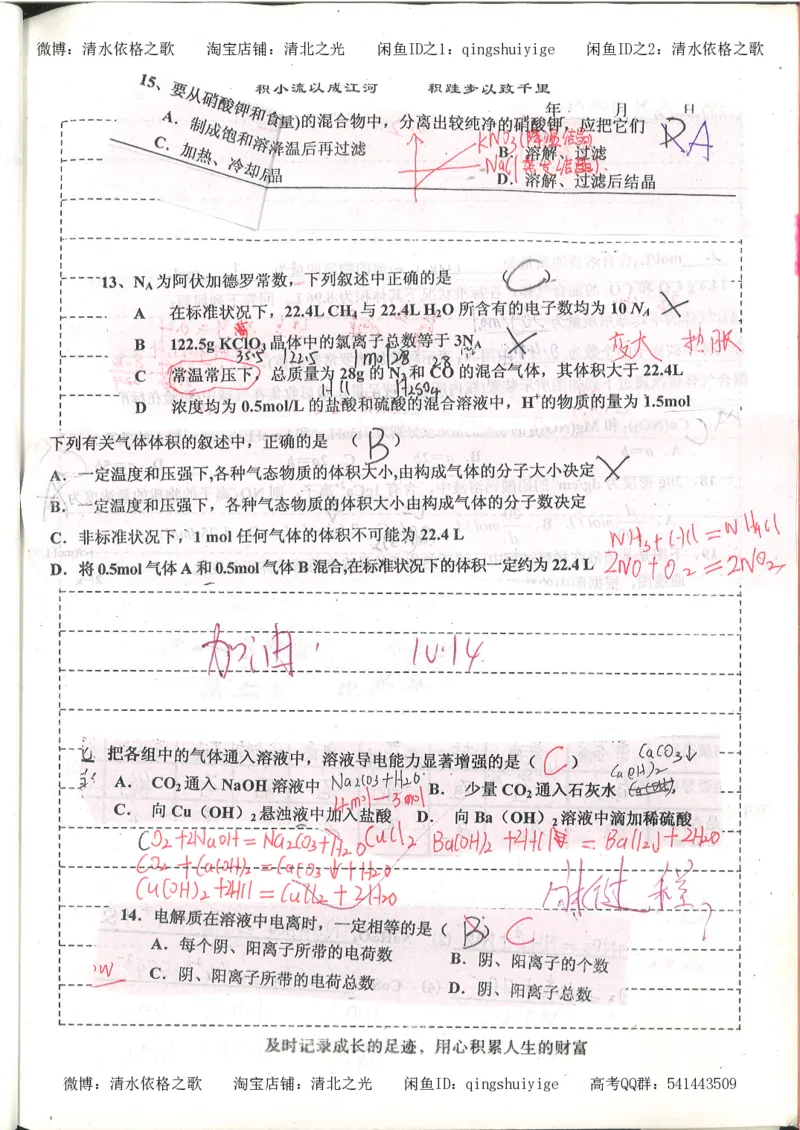 微博：清水依格之歌 淘宝店铺：清北之光 闲鱼ID之1：qingshuiyige 闲鱼ID之2：清水依格之歌
积小流以成江河 积跬步以致千里
年 月 日
15、要从硝酸钾和食量)的混合物中，分离出较纯净的硝酸钾，应把它们
RA
KNO3(降温结晶)
A．制成饱和溶液温后再过滤 B．溶解、过滤
NaCl(蒸发结晶).
C．加热、冷却后晶 D．溶解、过滤后结晶
13、NA为阿伏加德罗常数，下列叙述中正确的是 C
A 在标准状况下，22.4L CH4与 22.4L H2O 所含有的电子数均为 10 NA ×
B 122.5g KClO3晶体中的氯离子总数等于 3NA × 变大 热胀
35.5 122.5 1mol 28 28
C 常温常压下，总质量为 28g 的 N2和 CO 的混合气体，其体积大于 22.4L
HCl H2SO4
D 浓度均为 0.5mol/L 的盐酸和硫酸的混合溶液中，H+的物质的量为 1.5mol
下列有关气体体积的叙述中，正确的是 （ B ）
A．一定温度和压强下,各种气态物质的体积大小,由构成气体的分子大小决定 ×
B．一定温度和压强下，各种气态物质的体积大小由构成气体的分子数决定
C．非标准状况下，1 mol 任何气体的体积不可能为 22.4 L
NH3+HCl=NH4Cl
D．将 0.5mol 气体 A 和 0.5mol 气体 B 混合,在标准状况下的体积一定约为 22.4 L
2NO+O2=2NO2
加油！ 10.14
把各组中的气体通入溶液中，溶液导电能力显著增强的是（ C ）
CaCO3↓
Ca(OH)2
A． CO2通入 NaOH 溶液中 Na2CO3+H2O B． 少量 CO2通入石灰水
C． 向 Cu（OH）2悬浊液中加入盐酸 D． 向 Ba（OH）2溶液中滴加稀硫酸
CO2+2NaOH=Na2CO3+H2O CuCl2 Ba(OH)2+2HCl=BaCl2+2H2O
CO2+Ca(OH)2=CaCO3↓+H2O
Cu(OH)2+2HCl=CuCl2+3H2O
14．电解质在溶液中电离时，一定相等的是（ B ） C
A．每个阴、阳离子所带的电荷数 B．阴、阳离子的个数
C．阴、阳离子所带的电荷总数 D．阴、阳离子总数
及时记录成长的足迹，用心积累人生的财富
微博：清水依格之歌 淘宝店铺：清北之光 闲鱼ID：qingshuiyige 高考QQ群：541443509